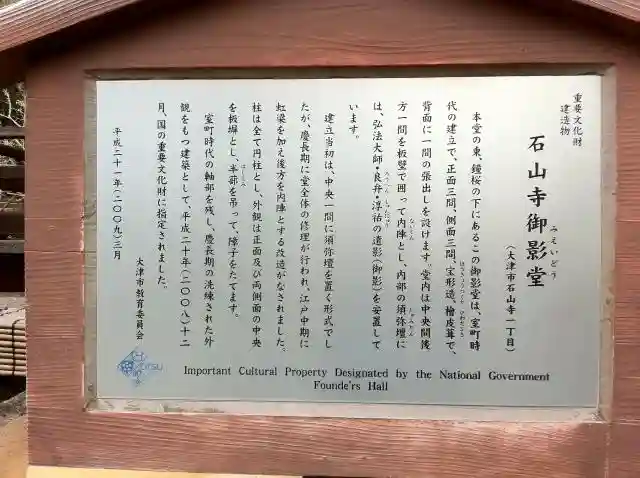 重要文化財
建造物
石山寺御影堂
みえいどう
(大津市石山寺一丁目)
本堂の東、鐘楼の下にあるこの御影堂は、室町時
代の建立で、正面三間、側面三間、宝形造、檜皮葺で、
ほうぎょうづくり ひわだぶき
背面に一間の張出しを設けます。堂内は中央間後
方一間を板壁で囲って内陣とし、内部の須弥壇に
ないじん しゅみだん
は、弘法大師・良弁・淳祐の遺影(御影)を安置して
います。
建立当初は、中央一間に須弥壇を置く形式でし
たが、慶長期に堂全体の修理が行われ、江戸中期に
虹梁を加え後方を内陣とする改造がなされました。
柱は全て円柱とし、外観は正面及び両側面の中央
を板塀とし、半蔀を吊って、障子をたてます。
はじとみ
室町時代の軸部を残し、慶長期の洗練された外
観をもつ建築として、平成二十年(二〇〇八)十二
月、国の重要文化財に指定されました。
平成二十一年(二〇〇九)三月
大津市教育委員会
Important Cultural Property Designated by the National Government
Founde'rs Hall